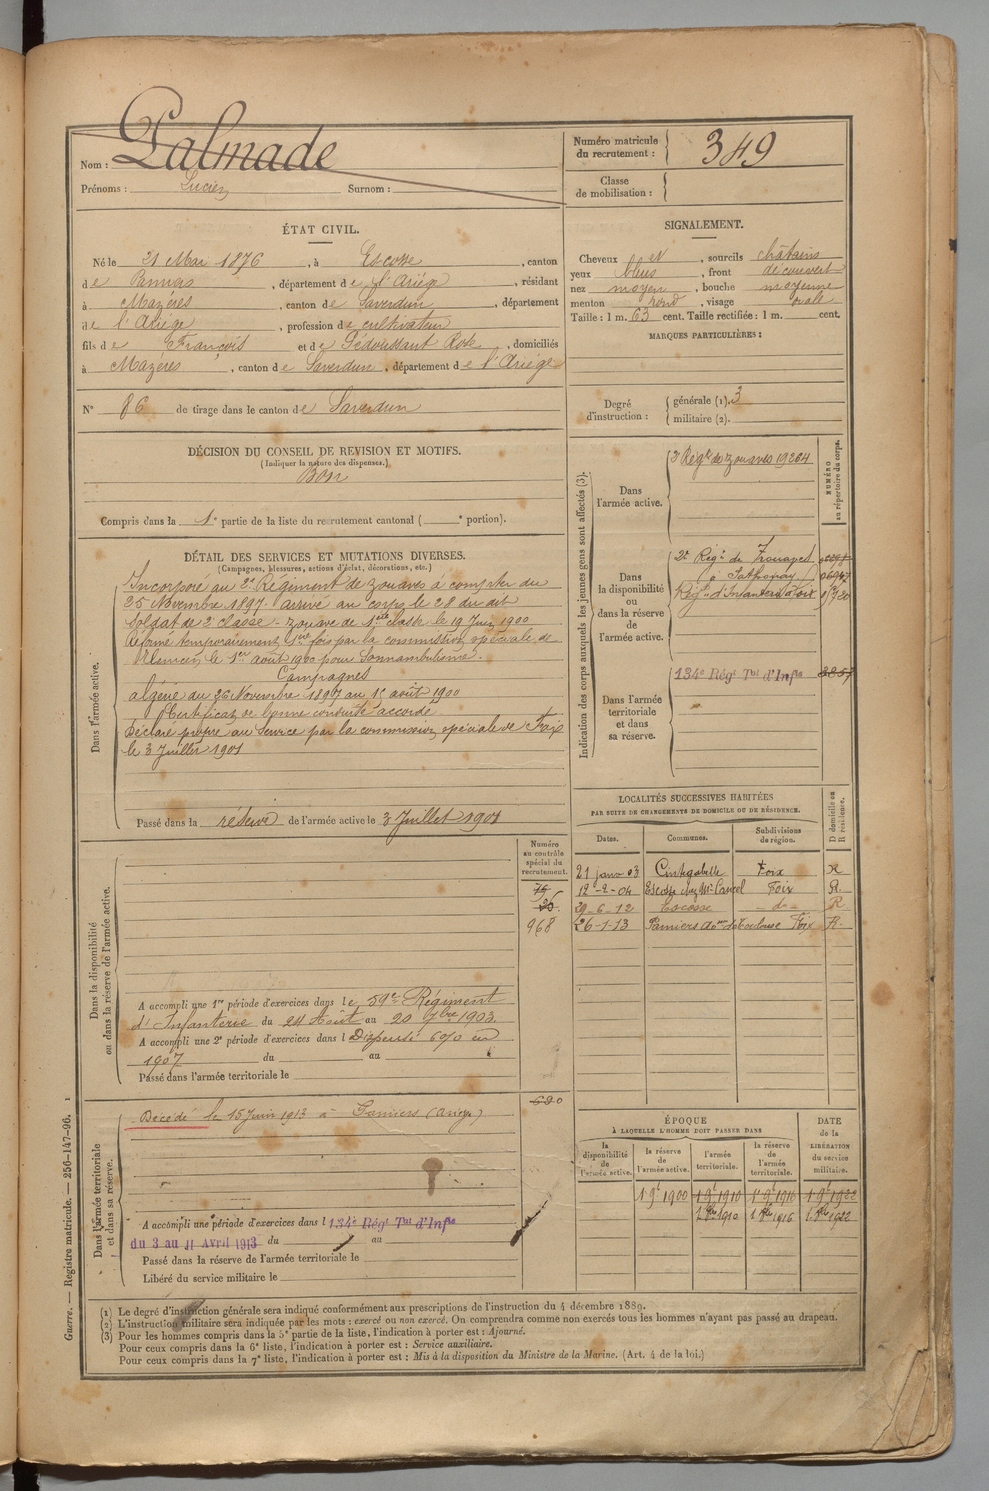 Nom : Palmade
Prénoms : Lucien Surnom :
Numéro matricule du recrutement : 349
Classe de mobilisation :
ÉTAT CIVIL.
Né le 21 Mai 1876, à Escosse, canton
de Pamiers, département de l'Ariège, résidant
à Mazères, canton de Saverdun, département
de l'Ariège, profession de cultivateur
fils de François et de Pédoussaut Rose, domiciliés
à Mazères, canton de Saverdun, département de l'Ariège
N° 86 de tirage dans le canton de Saverdun
SIGNALEMENT.
Cheveux et, sourcils châtains
yeux bleus, front découvert
nez moyen, bouche moyenne
menton rond, visage ovale
Taille : 1 m. 63 cent. Taille rectifiée : 1 m. cent.
MARQUES PARTICULIÈRES :
Degré d'instruction : générale (1). 3
militaire (2).
DÉCISION DU CONSEIL DE REVISION ET MOTIFS.
(Indiquer la nature des dispenses.)
Bon
Compris dans la 1e partie de la liste du recrutement cantonal ( e portion).
DÉTAIL DES SERVICES ET MUTATIONS DIVERSES.
(Campagnes, blessures, actions d'éclat, décorations, etc.)
Dans l'armée active.
Incorporé au 2e Régiment de zouaves à compter du
25 Novembre 1897 arrivé au corps le 28 du dit
soldat de 2e classe - zouave de 1ère classe le 19 Juin 1900
Réformé temporairement 1ère fois par la commission spéciale de
Tlemcen le 1er août 1900 pour Somnambulisme.
Campagnes
Algérie du 26 Novembre 1897 au 15 août 1900
Certificat de bonne conduite accordé
Déclaré propre au Service par la commission spéciale de Foix
le 3 Juillet 1901
Passé dans la réserve de l'armée active le 3 Juillet 1901
Indication des corps auxquels les jeunes gens sont affectés (3).
NUMÉRO au répertoire du corps.
Dans l'armée active.
Régt de zouaves 19264
Dans la disponibilité ou dans la réserve de l'armée active.
2e Régt de Zouaves
à Sathonay
Régt d'Infanterie à Foix
Dans l'armée territoriale et dans sa réserve.
134e Régt Tal d'Infie
LOCALITÉS SUCCESSIVES HABITÉES
PAR SUITE DE CHANGEMENTS DE DOMICILE OU DE RÉSIDENCE.
Dates. Communes. Subdivisions de région. D domicile ou R résidence.
21 janv 03 Cintegabelle Foix R
12-2-04 Escosse chez Mr Foix R.
29-6-12 Escosse - do - R
26-1-13 Pamiers Toulouse Foix R.
Dans la disponibilité ou dans la réserve de l'armée active.
Numéro au contrôle spécial du recrutement.
968
A accompli une 1re période d'exercices dans le 59e Régiment
d'Infanterie du 24 Août au 20 7bre 1903
A accompli une 2e période d'exercices dans l Dispensé 6% en
1907 du au
Passé dans l'armée territoriale le
Dans l'armée territoriale et dans sa réserve.
Décédé le 15 Juin 1913 à Pamiers (Ariège)
A accompli une période d'exercices dans l 134e Régt Tal d'Infie
du 3 au 11 Avril 1913 du au
Passé dans la réserve de l'armée territoriale le
Libéré du service militaire le
ÉPOQUE
À LAQUELLE L'HOMME DOIT PASSER DANS
la disponibilité de l'armée active. la réserve de l'armée active. l'armée territoriale. la réserve de l'armée territoriale.
DATE de la LIBÉRATION du service militaire.
1 9e 1900 1 9e 1910 1e 9e 1916 1 9e 1922
1 1910 1 1916 1 1922
(1) Le degré d'instruction générale sera indiqué conformément aux prescriptions de l'instruction du 4 décembre 1889.
(2) L'instruction militaire sera indiquée par les mots : exercé ou non exercé. On comprendra comme non exercés tous les hommes n'ayant pas passé au drapeau.
(3) Pour les hommes compris dans la 5e partie de la liste, l'indication à porter est : Ajourné.
Pour ceux compris dans la 6e liste, l'indication à porter est : Service auxiliaire.
Pour ceux compris dans la 7e liste, l'indication à porter est : Mis à la disposition du Ministre de la Marine. (Art. 4 de la loi.)
Guerre. — Registre matricule. — 256-147-96. 1